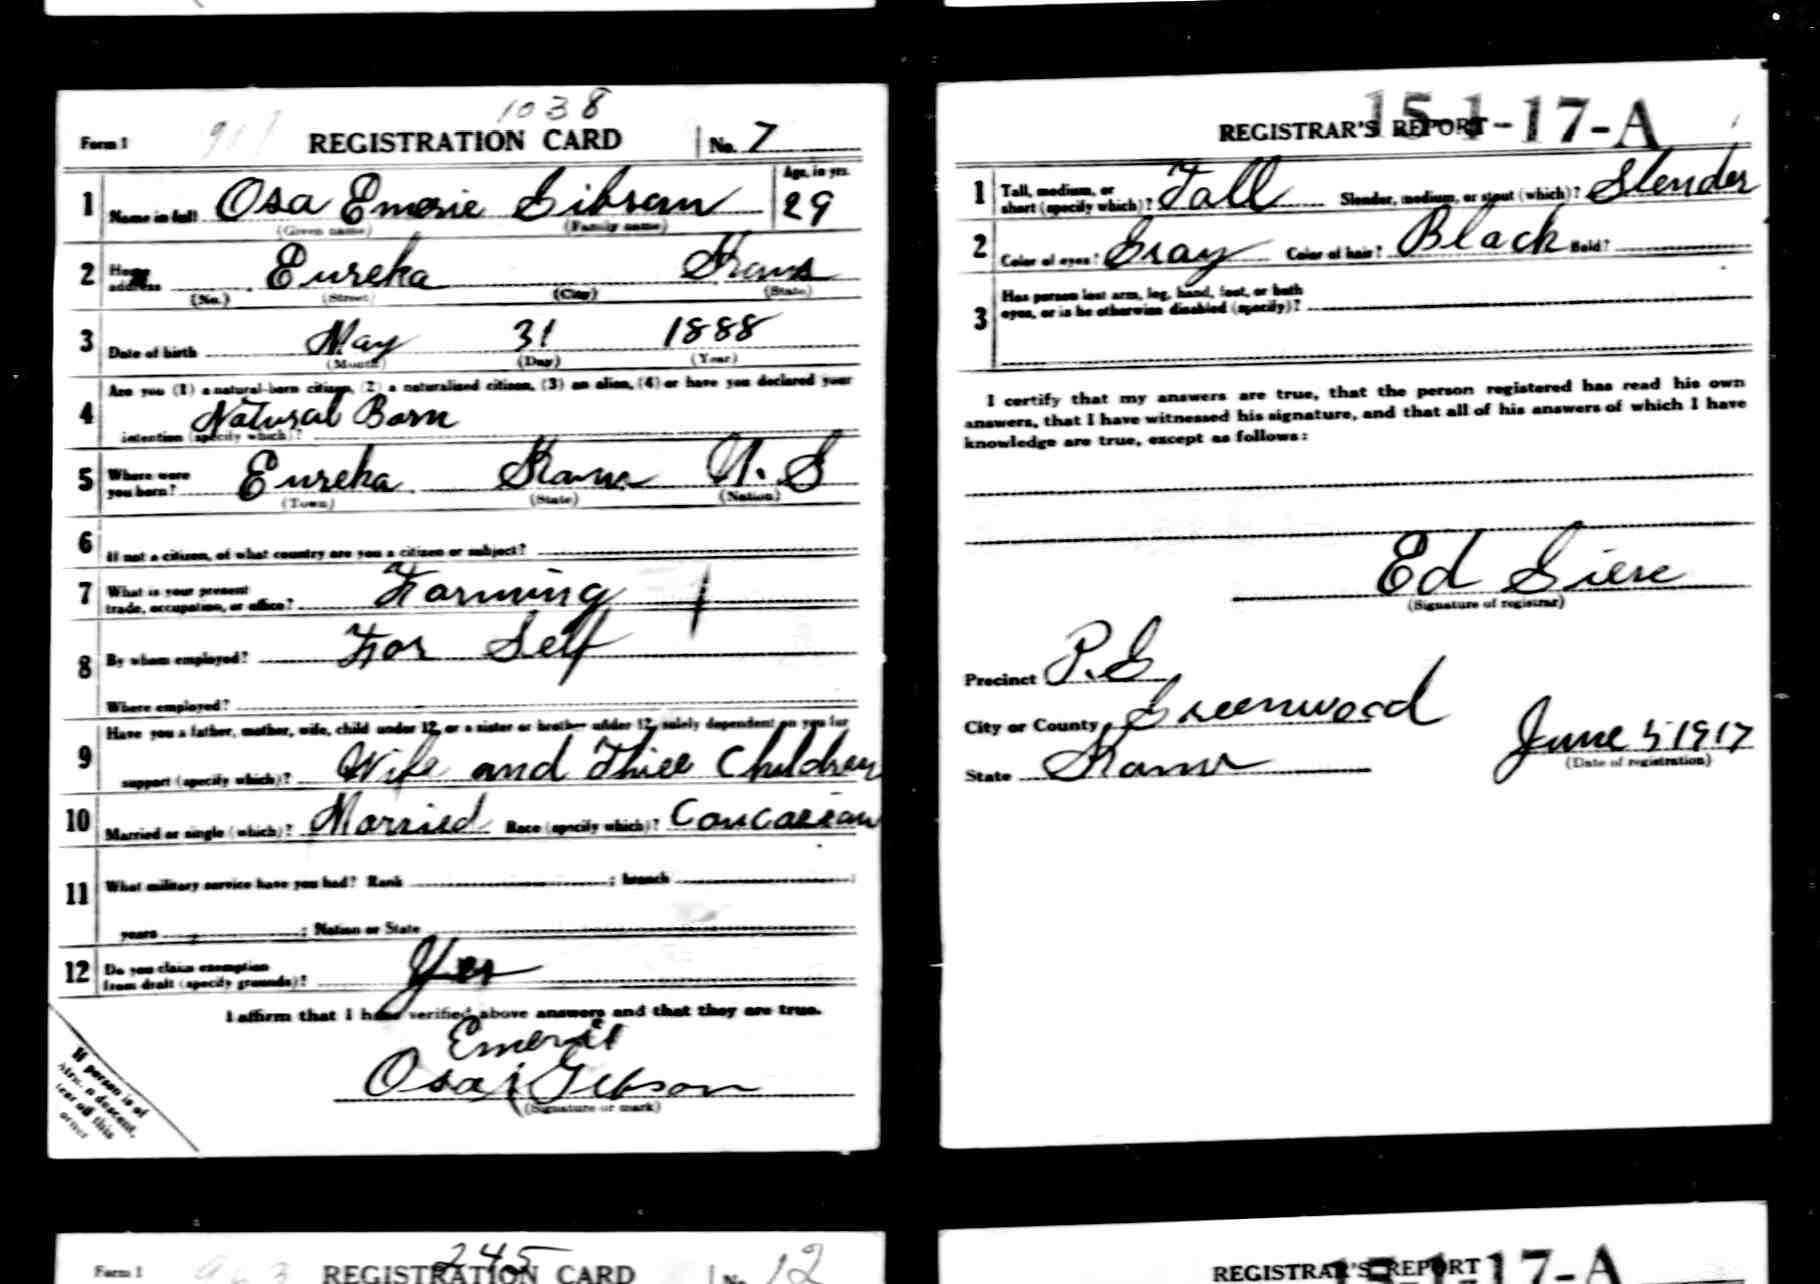 1038
Form 1 REGISTRATION CARD No. 7
1 Name in full Osa Emerie Gibson Age, in yrs. 29
(Given name) (Family name)
2 Home address Eureka Kans
(No.) (Street) (City) (State)
3 Date of birth May 31 1888
(Month) (Day) (Year)
4 Are you (1) a natural-born citizen, (2) a naturalized citizen, (3) an alien, (4) or have you declared your
intention (specify which)? Natural Born
5 Where were you born? Eureka Kans U. S
(Town) (State) (Nation)
6 If not a citizen, of what country are you a citizen or subject?
7 What is your present trade, occupation, or office? Farming
8 By whom employed? For Self
Where employed?
9 Have you a father, mother, wife, child under 12, or a sister or brother under 12, solely dependent on you for
support (specify which)? Wife and Three Children
10 Married or single (which)? Married Race (specify which)? Caucasian
11 What military service have you had? Rank ; branch ;
years ; Nation or State
12 Do you claim exemption from draft (specify grounds)? Yes
I affirm that I have verified above answers and that they are true.
Osa Gibson
(Signature or mark)
If person is of
descent,
tear off this
corner
15-1-17-A
REGISTRAR'S REPORT
1 Tall, medium, or short (specify which)? Tall Slender, medium, or stout (which)? Slender
2 Color of eyes? Gray Color of hair? Black Bald?
3 Has person lost arm, leg, hand, foot, or both
eyes, or is he otherwise disabled (specify)?
I certify that my answers are true, that the person registered has read his own
answers, that I have witnessed his signature, and that all of his answers of which I have
knowledge are true, except as follows:
Ed
(Signature of registrar)
Precinct P.G
City or County Greenwood
State Kans
June 5 1917
(Date of registration)
245
Form 1 963 REGISTRATION CARD No. 12
REGISTRAR'S REPORT
15-1-17-A